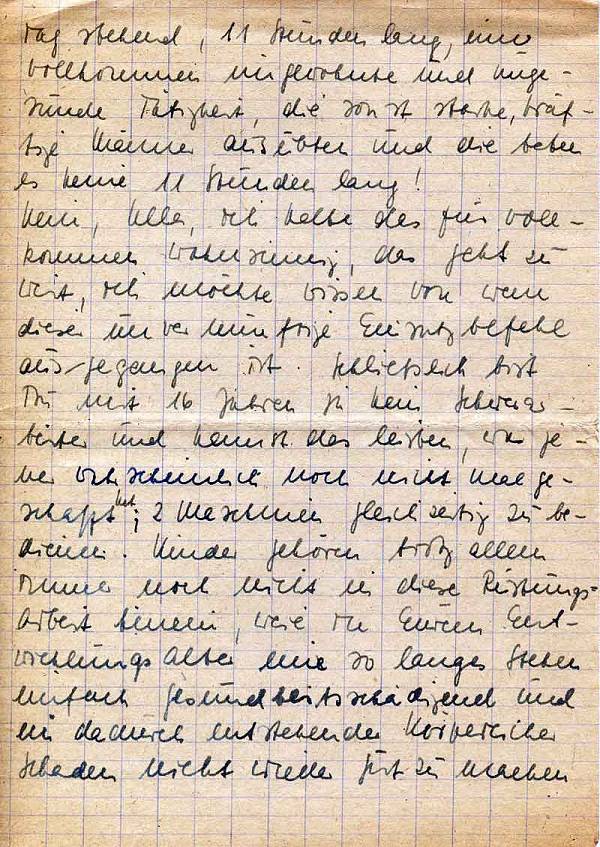 tag stehend, 11 Stunden lang, eine
vollkommen ungewohnte und unge-
sunde Tätigkeit, die sonst starke, kräf-
tige Männer ausübten und die haben
es keine 11 Stunden lang!
Nein, ich halte das für voll-
kommen wahnsinnig, das geht zu
weit, ich möchte wissen von wem
dieser unvernünftige Einsatzbefehl
ausgegangen ist. Schließlich bist
Du mit 16 Jahren ja kein Schwerar-
beiter und kannst das leisten, was je-
ner wahrscheinlich noch nicht mal ge-
schafft hat; 2 Maschinen gleichzeitig zu be-
dienen. Kinder gehören trotz allem
immer noch nicht in diese Rüstungs-
arbeit hinein, weil in Eurem Ent-
wicklungsalter eine so langes Stehen
einfach gesundheitsschädigend und
ein dadurch entstehender körperlicher
Schaden nicht wieder gut zu machen